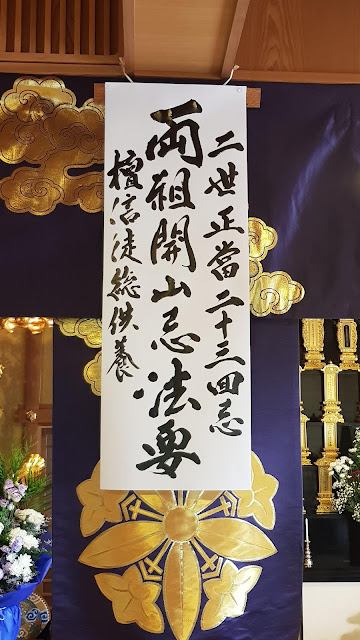 二世正當二十三回忌
両祖開山忌法要
檀信徒総供養